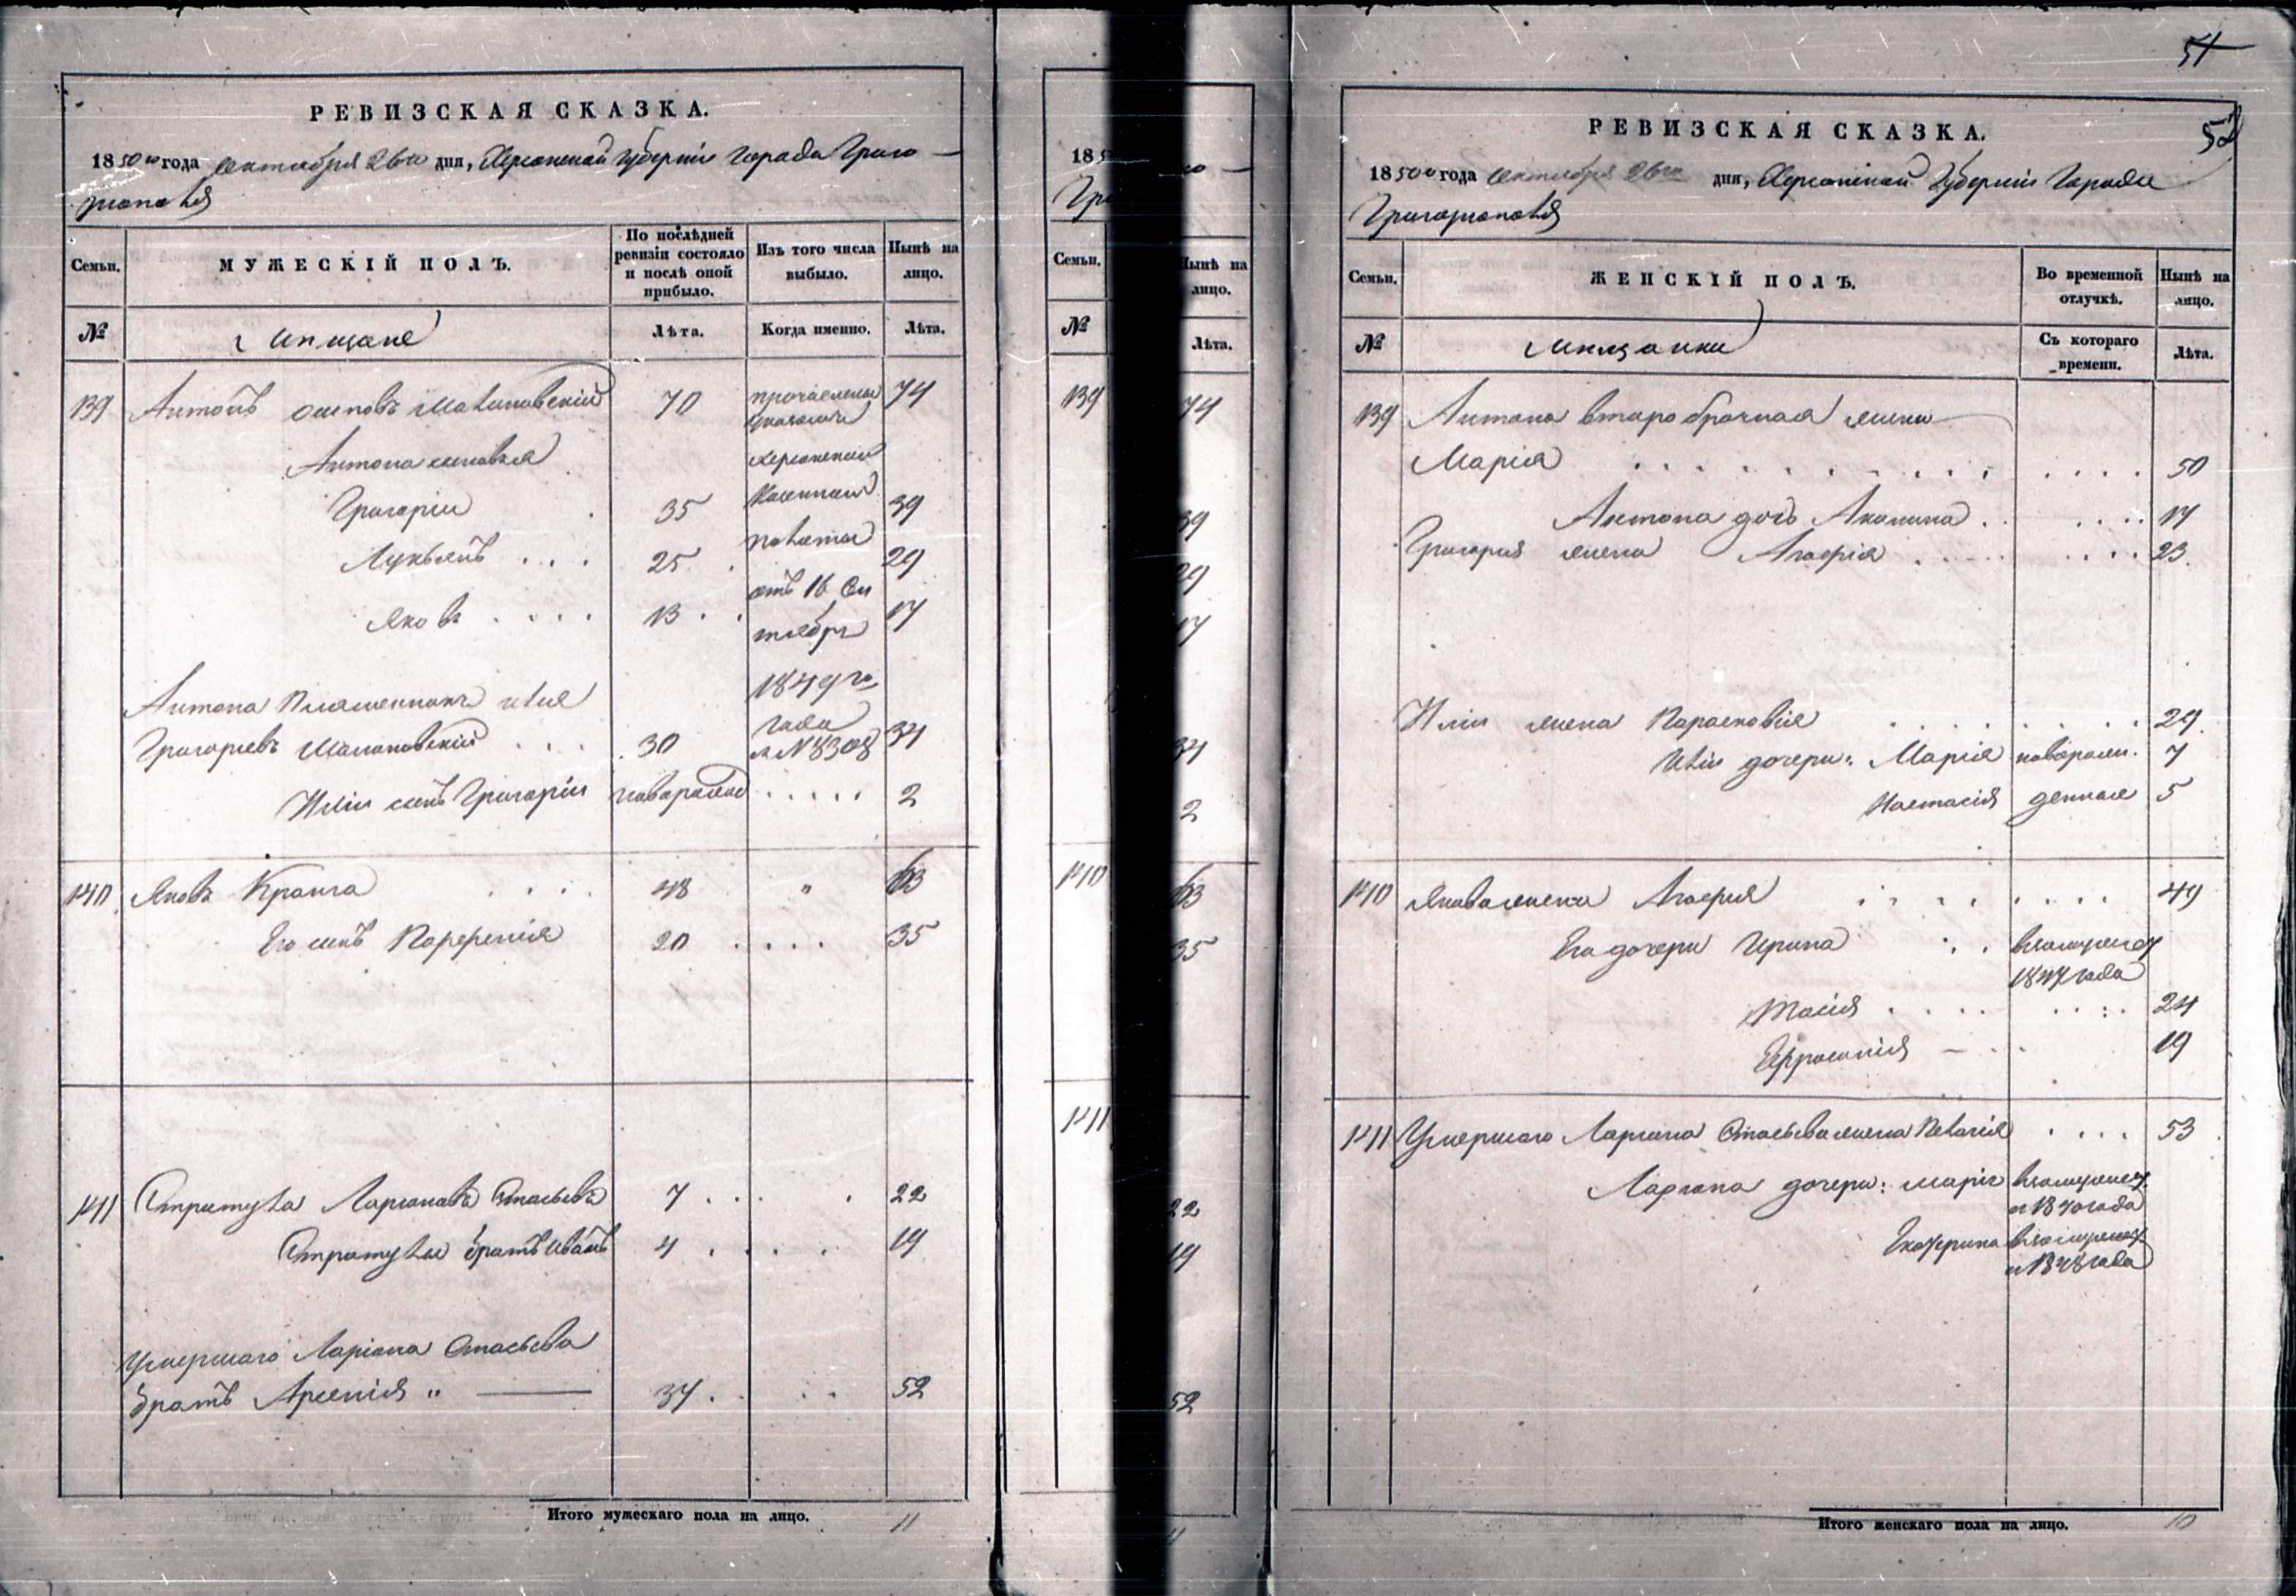 РЕВИЗСКАЯ СКАЗКА.
1850го года октября 26го дня, Херсонской Губернии города Григо-
риополя
Семьи.
МУЖЕСКІЙ ПОЛЪ.
По послѣдней ревизіи состояло и послѣ оной прибыло.
Изъ того числа выбыло.
Нынѣ на лицо.
№
мещане
Лѣта.
Когда именно.
Лѣта.
139 Антонъ Осиповъ 70 74
Антона сыновья
Григорій 35 39
Лукьянъ 25 29
Яковъ 13 17
отъ 16 Сен
тября
1849го
года
за № 8308
Антона племянникъ Илія
Григорьевъ 30 34
Иліи сынъ Григорій новорожд 2
140 Яковъ 48 " 63
Его сынъ 20 35
141 Ларіоновъ Стасьевъ 7 22
братъ Иванъ 4 19
Умершаго Ларіона Стасьева
братъ Арсеній " 37 52
Итого мужескаго пола на лицо. 11
185
Гри
Семьи.
Нынѣ на лицо.
№
Лѣта.
139 74
39
29
17
34
2
140 63
35
141
22
19
52
51
52
РЕВИЗСКАЯ СКАЗКА.
1850го года октября 26го дня, Херсонской Губернии Города
Григориополя
Семьи.
ЖЕНСКІЙ ПОЛЪ.
Во временной отлучкѣ.
Нынѣ на лицо.
№
мещанки
Съ котораго времени.
Лѣта.
139 Антона второбрачная жена
Марія 50
Антона дочь Акилина 17
Григорія жена Агафія 23
Иліи жена Парасковія 29
Иліи дочери: Марія новорож. 7
Настасія денная 5
140 Якова жена Агафія 49
Его дочери Ирина взамужеству
1847 года
Тасія 24
Ефросинія 19
141 Умершаго Ларіона Стасьева жена Пелагія 53
Ларіона дочери: Марія взамужест.
с 1840 года
Екатерина взамужест
с 1848 года
Итого женскаго пола на лицо. 10